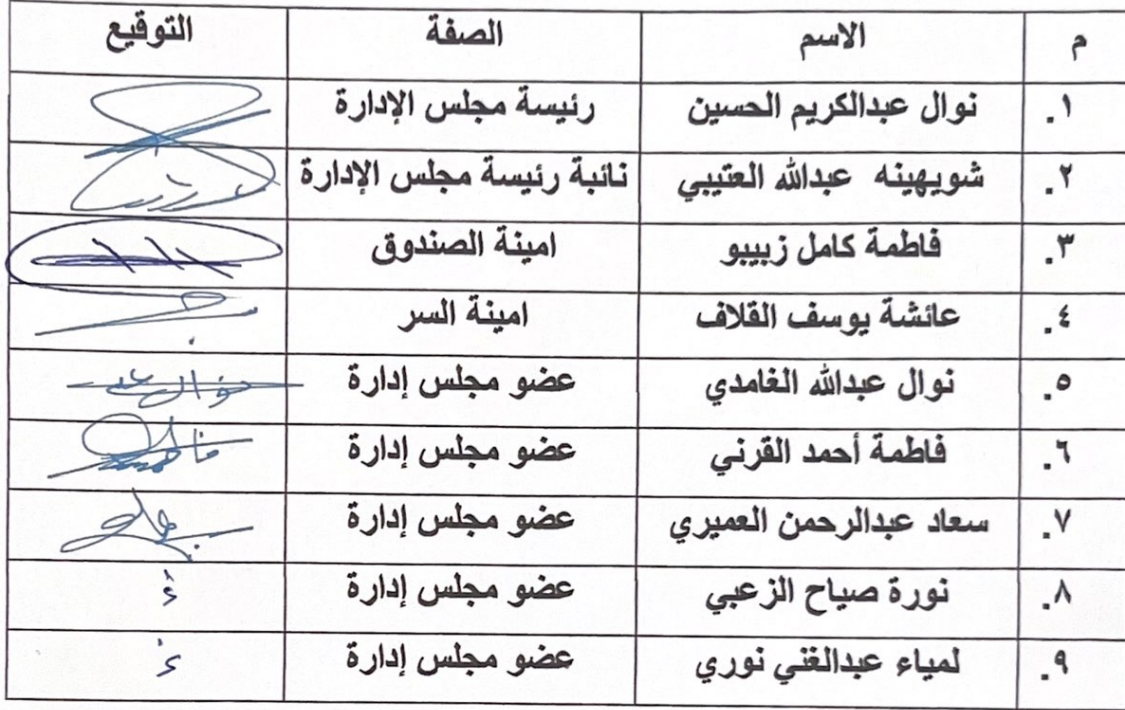 م الاسم الصفة التوقيع
١. نوال عبدالكريم الحسين رئيسة مجلس الإدارة
٢. شويهينه عبدالله العتيبي نائبة رئيسة مجلس الإدارة
٣. فاطمة كامل زبيبو امينة الصندوق
٤. عائشة يوسف القلاف امينة السر
٥. نوال عبدالله الغامدي عضو مجلس إدارة
٦. فاطمة أحمد القرني عضو مجلس إدارة فاطمة
٧. سعاد عبدالرحمن العميري عضو مجلس إدارة
٨. نورة صياح الزعبي عضو مجلس إدارة
٩. لمياء عبدالغني نوري عضو مجلس إدارة